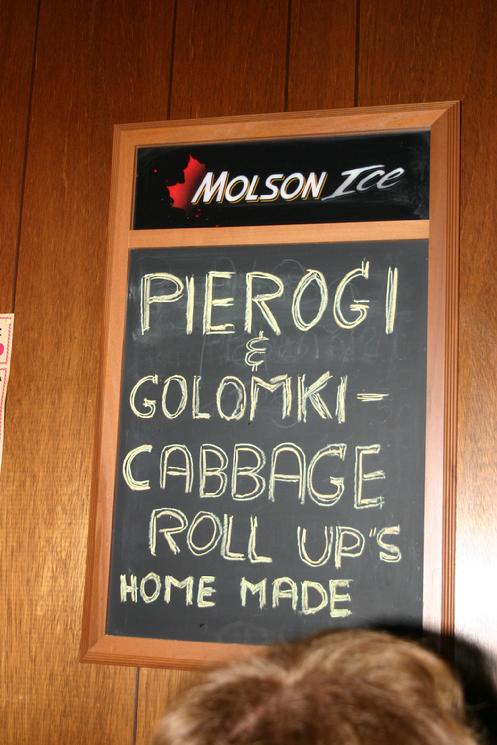 MOLSON Ice
PIEROGI
&
GOLOMKI-
CABBAGE
ROLL UP"S
HOME MADE